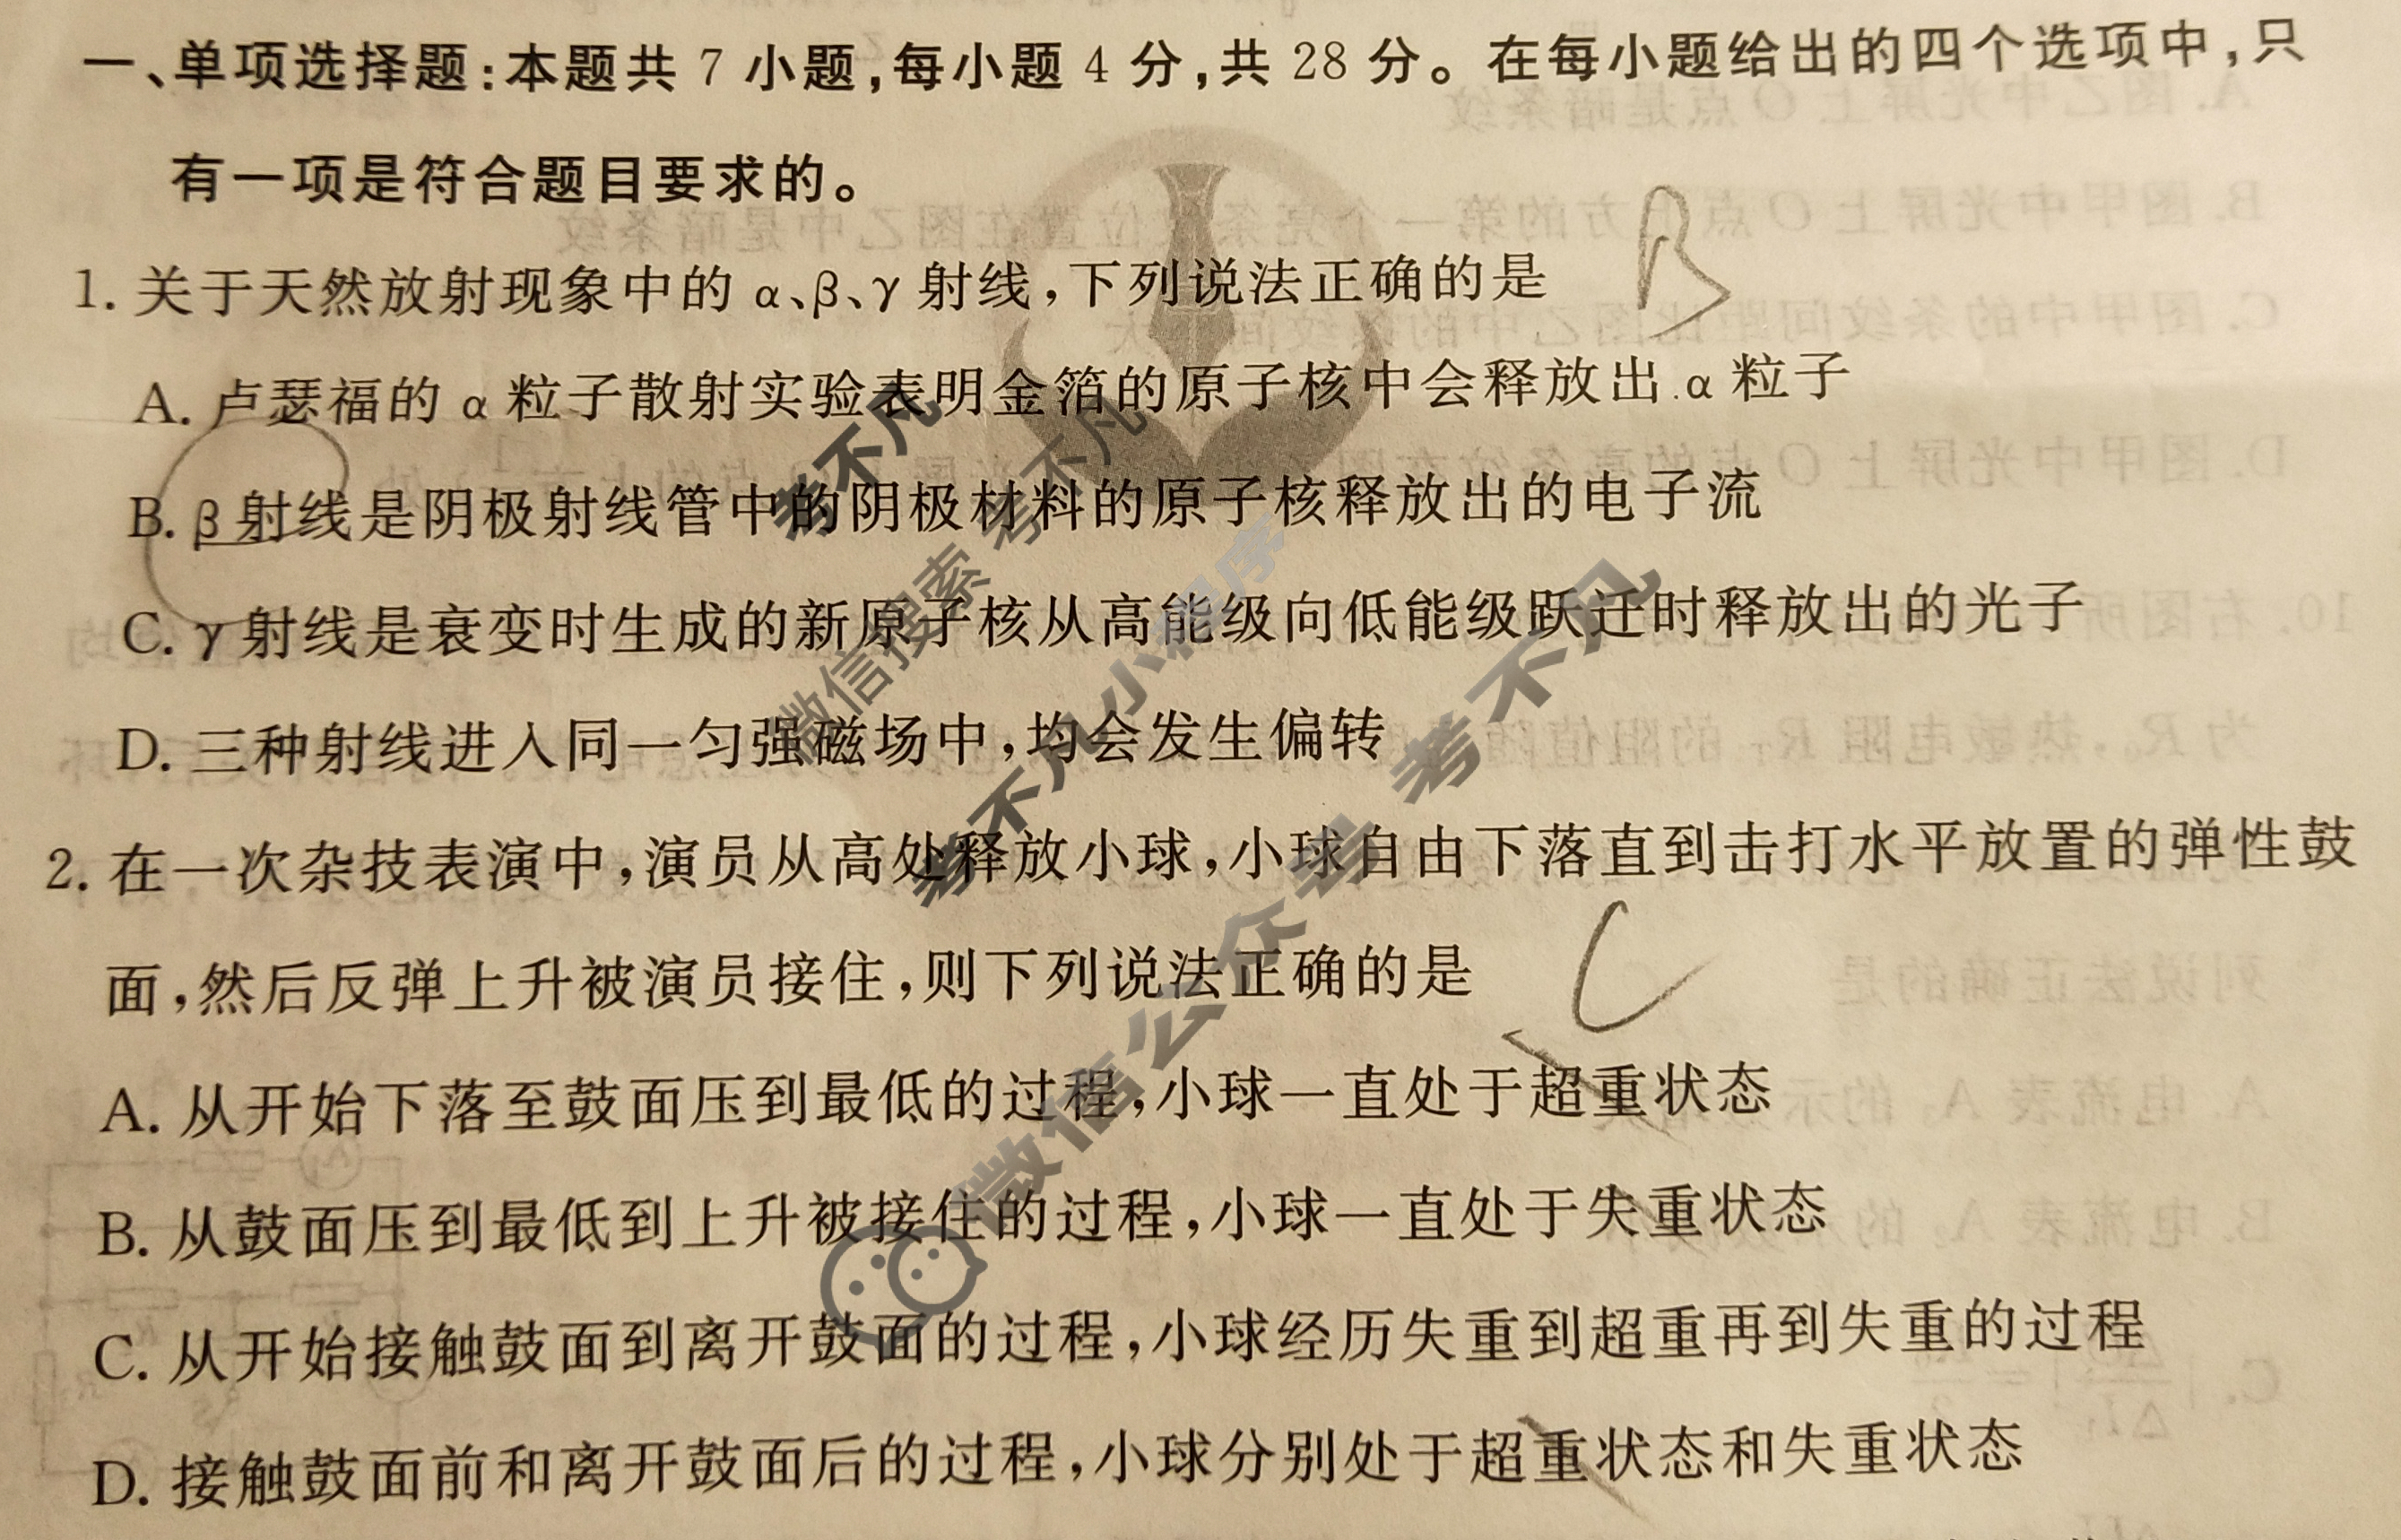 一、单项选择题:本题共 7 小题,每小题 4 分,共 28 分。在每小题给出的四个选项中,只
有一项是符合题目要求的。
1. 关于天然放射现象中的 α、β、γ 射线,下列说法正确的是 B
A. 卢瑟福的 α 粒子散射实验表明金箔的原子核中会释放出 α 粒子
B. β 射线是阴极射线管中的阴极材料的原子核释放出的电子流
C. γ 射线是衰变时生成的新原子核从高能级向低能级跃迁时释放出的光子
D. 三种射线进入同一匀强磁场中,均会发生偏转
2. 在一次杂技表演中,演员从高处释放小球,小球自由下落直到击打水平放置的弹性鼓
面,然后反弹上升被演员接住,则下列说法正确的是 C
A. 从开始下落至鼓面压到最低的过程,小球一直处于超重状态
B. 从鼓面压到最低到上升被接住的过程,小球一直处于失重状态
C. 从开始接触鼓面到离开鼓面的过程,小球经历失重到超重再到失重的过程
D. 接触鼓面前和离开鼓面后的过程,小球分别处于超重状态和失重状态
考不凡
微信搜索 考不凡
考不凡小程序
微信公众号 考不凡